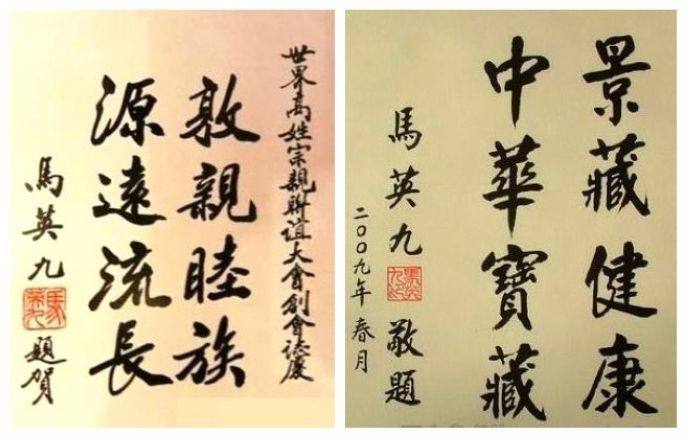 世界高姓宗親聯誼大會創會誌慶
敦親睦族
源遠流長
馬英九
題賀
景藏健康
中華寶藏
馬英九
敬題
二〇〇九年春月